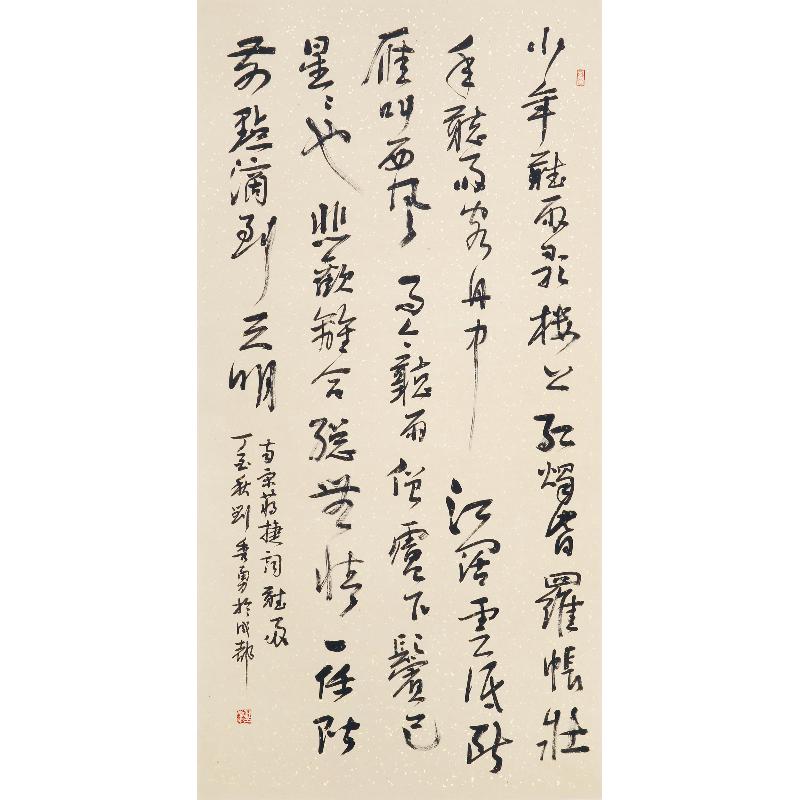 少年聽雨歌樓上紅燭昏羅帳壯
年聽雨客舟中江闊雲低斷
雁叫西風而今聽雨僧廬下鬢已
星星也悲歡離合總無情一任階
前點滴到天明
南宋蔣捷詞聽雨
丁秋劉勇於成都